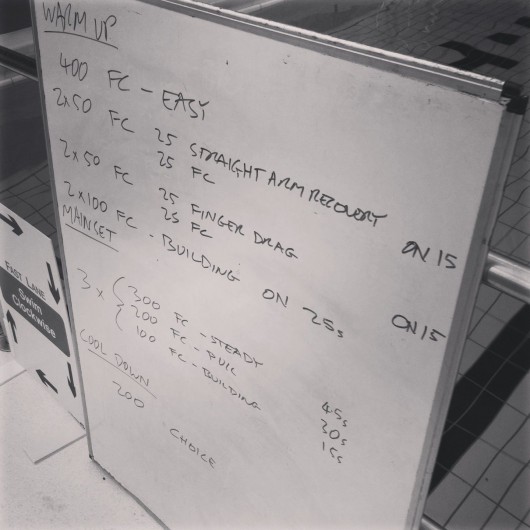 WARM UP
400 FC - EASY
2x50 FC 25 STRAIGHT ARM RECOVERY ON 15
25 FC
2x50 FC 25 FINGER DRAG ON 15
25 FC
2x100 FC - BUILDING ON 25s
MAINSET
3 x 300 FC - STEADY 45s
200 FC - PULL 30s
100 FC - BUILDING 15s
COOL DOWN
200 CHOICE
FAST LANE
Swim
Clockwise